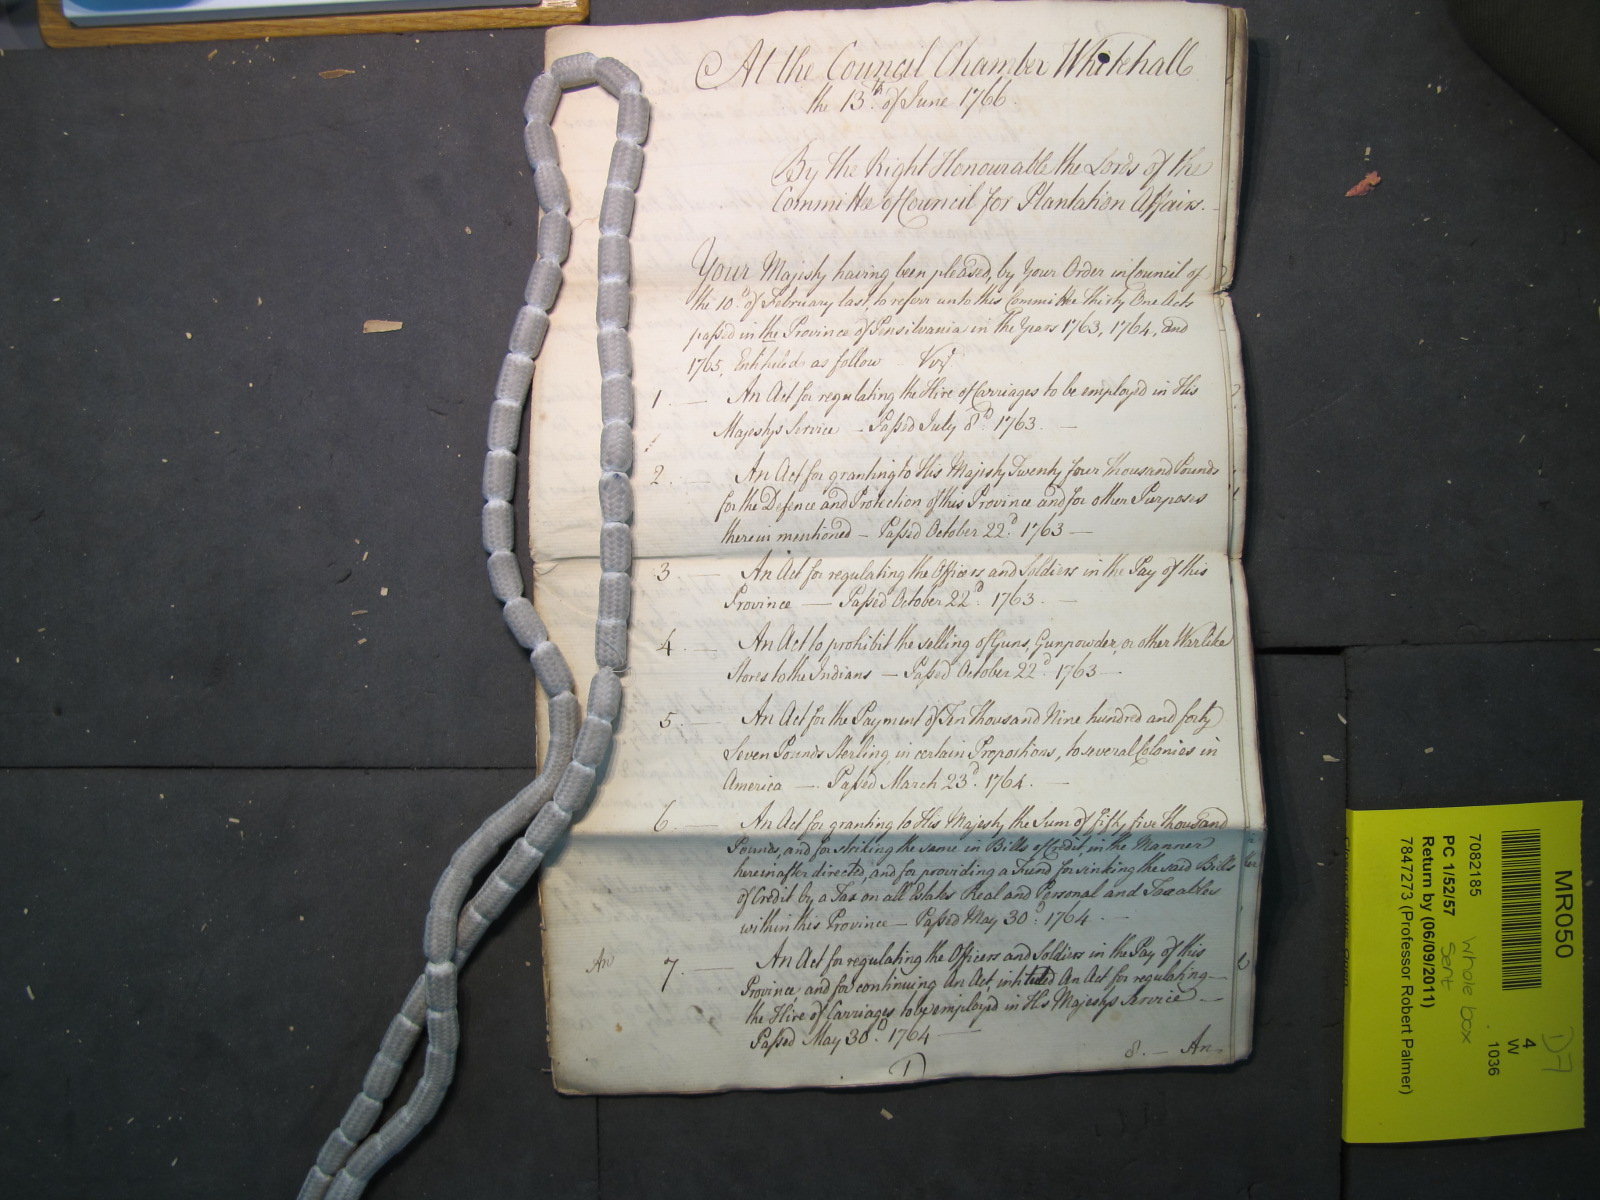 At the Council Chamber Whitehall
the 13th. of June 1766.
By the Right Honourable the Lords of the
Committee of Council for Plantation Affairs.
Your Majesty having been pleased, by Your Order in Council of
the 10th. of February last to referr unto this Committee Thirty One Acts
passed in the Province of Pensilvania in the Years 1763, 1764, and
1765, Entituled as follow Vizt.
1. — An Act for regulating the Hire of Carriages to be employed in His
Majestys Service — Passed July 8d. 1763. —
2. — An Act for granting to His Majesty Twenty four Thousand Pounds
for the Defence and Protection of this Province and for other Purposes
therein mentioned — Passed October 22d. 1763 —
3 — An Act for regulating the Officers and Soldiers in the Pay of this
Province — Passed October 22d. 1763. —
4. — An Act to prohibit the selling of Guns, Gunpowder, or other Warlike
Stores to the Indians — Passed October 22d. 1763 —
5. — An Act for the Payment of Ten thousand Nine hundred and forty
Seven Pounds Sterling in certain Proportions, to several Colonies in
America — Passed March 23d. 1764. —
6. — An Act for granting to His Majesty the Sum of Fifty five thousand
Pounds, and for striking the same in Bills of Credit, in the Manner
hereinafter directed, and for providing a Fund for sinking the said Bills
of Credit by a Tax on all Estates Real and Personal and Taxables
within this Province — Passed May 30d. 1764 —
An 7. — An Act for regulating the Officers and Soldiers in the Pay of this
Province, and for continuing An Act, intituled An Act for regulating —
the Hire of Carriages to be employed in His Majestys Service —
Passed May 30d. 1764 —
8. — An
MR050
7082185
PC 1/52/57
Return by (06/09/2011)
7847273 (Professor Robert Palmer)
4
W
1036
Whole box
sent
D7